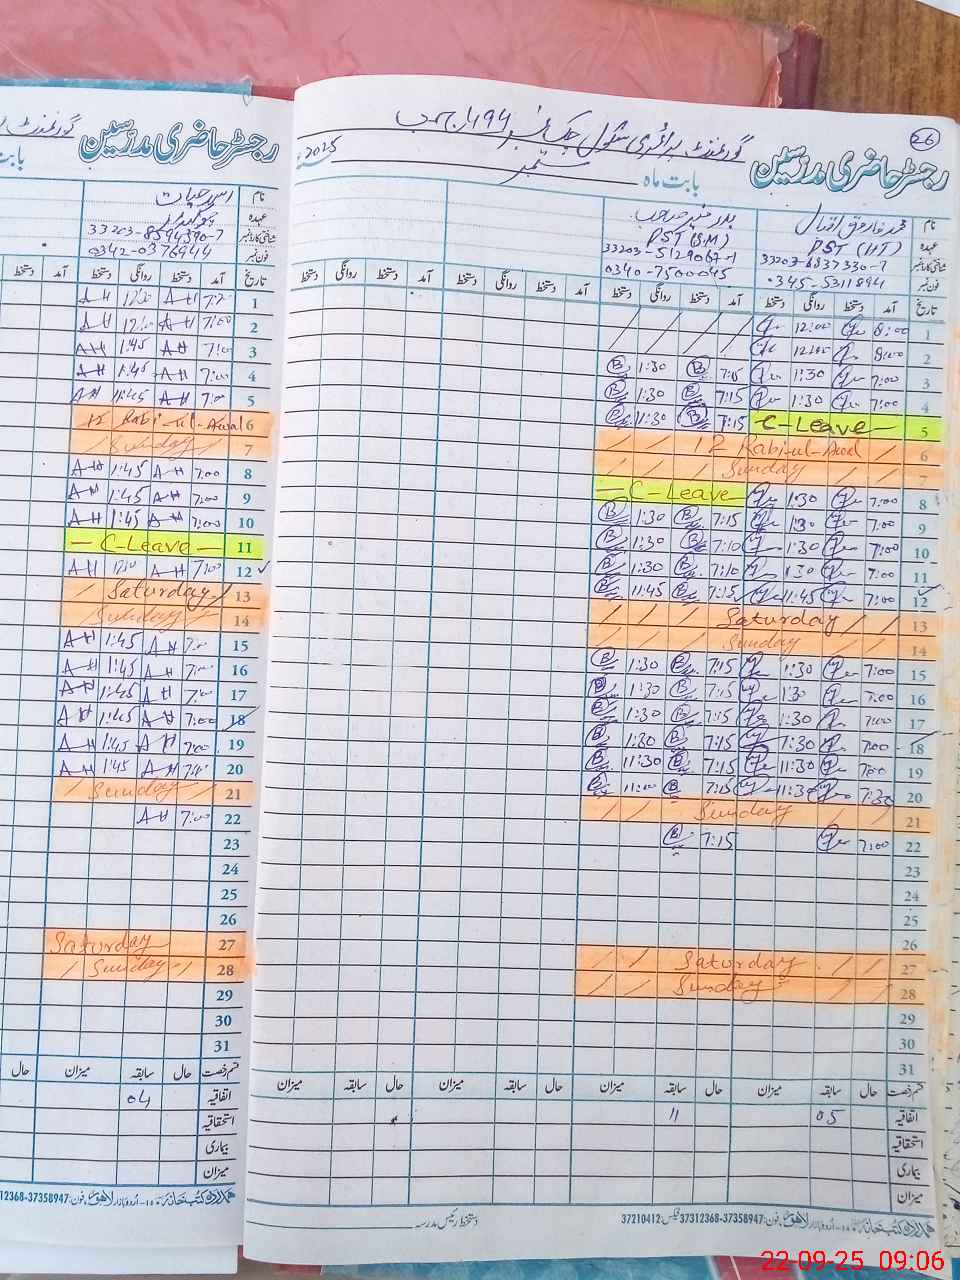 26
رجسٹر حاضری مدرّسین
گورنمنٹ پرائمری سکول چک نمبر 494 ج ب
بابت ماہ ستمبر 2025
نام
عہدہ PST (HT) PST (S.M)
شناختی کارڈ نمبر
فون نمبر 0345-5311894 0340-7500045
تاریخ آمد دستخط روانگی دستخط آمد دستخط روانگی دستخط آمد دستخط روانگی دستخط آمد دستخط روانگی دستخط
1 8:00 12:00
2 8:00 12:00
3 7:00 1:30 7:15 1:30
4 7:00 1:30 7:15 1:30
5 C-Leave 7:15 11:30
6 12 Rabi-ul-Awal
7 Sunday
8 7:00 1:30 C-Leave
9 7:00 1:30 7:15 1:30
10 7:00 1:30 7:10 1:30
11 7:00 1:30 7:10 1:30
12 7:00 11:45 7:15 11:45
13 Saturday
14 Sunday
15 7:00 1:30 7:15 1:30
16 7:00 1:30 7:15 1:30
17 7:00 1:30 7:15 1:30
18 7:00 1:30 7:15 1:30
19 7:00 11:30 7:15 11:30
20 7:30 11:30 7:15 11:00
21 Sunday
22 7:00 7:15
23
24
25
26
27 Saturday
28 Sunday
29
30
31
قسم رخصت حال سابقہ میزان حال سابقہ میزان حال سابقہ میزان حال سابقہ میزان
اتفاقیہ 05 11
استحقاقیہ
بیماری
میزان
فون: 37312368-37358947 فیکس: 37210412
دستخط رئیس مدرسہ
رجسٹر حاضری مدرّسین
گورنمنٹ
بابت
نام
عہدہ چوکیدار
شناختی کارڈ نمبر 33203-8594390-7
فون نمبر 0342-0376944
تاریخ آمد دستخط روانگی دستخط آمد دستخط
1 AH AH
2 7:00 AH 12:00 AH
3 7:00 AH 1:45 AH
4 7:00 AH 1:45 AH
5 7:00 AH 11:45 AH
6 12 Rabi-ul-Awal
7 Sunday
8 7:00 AH 1:45 AH
9 7:00 AH 1:45 AH
10 7:00 AH 1:45 AH
11 C-Leave
12 7:00 AH AH
13 Saturday
14 Sunday
15 7:00 AH 1:45 AH
16 7:00 AH 1:45 AH
17 7:00 AH 1:45 AH
18 7:00 AH 1:45 AH
19 7:00 AH 1:45 AH
20 7:00 AH 1:45 AH
21 Sunday
22 7:00 AH
23
24
25
26
27 Saturday
28 Sunday
29
30
31
قسم رخصت حال سابقہ میزان حال
اتفاقیہ 04
استحقاقیہ
بیماری
میزان
12368-37358947
22-09-25 09:06